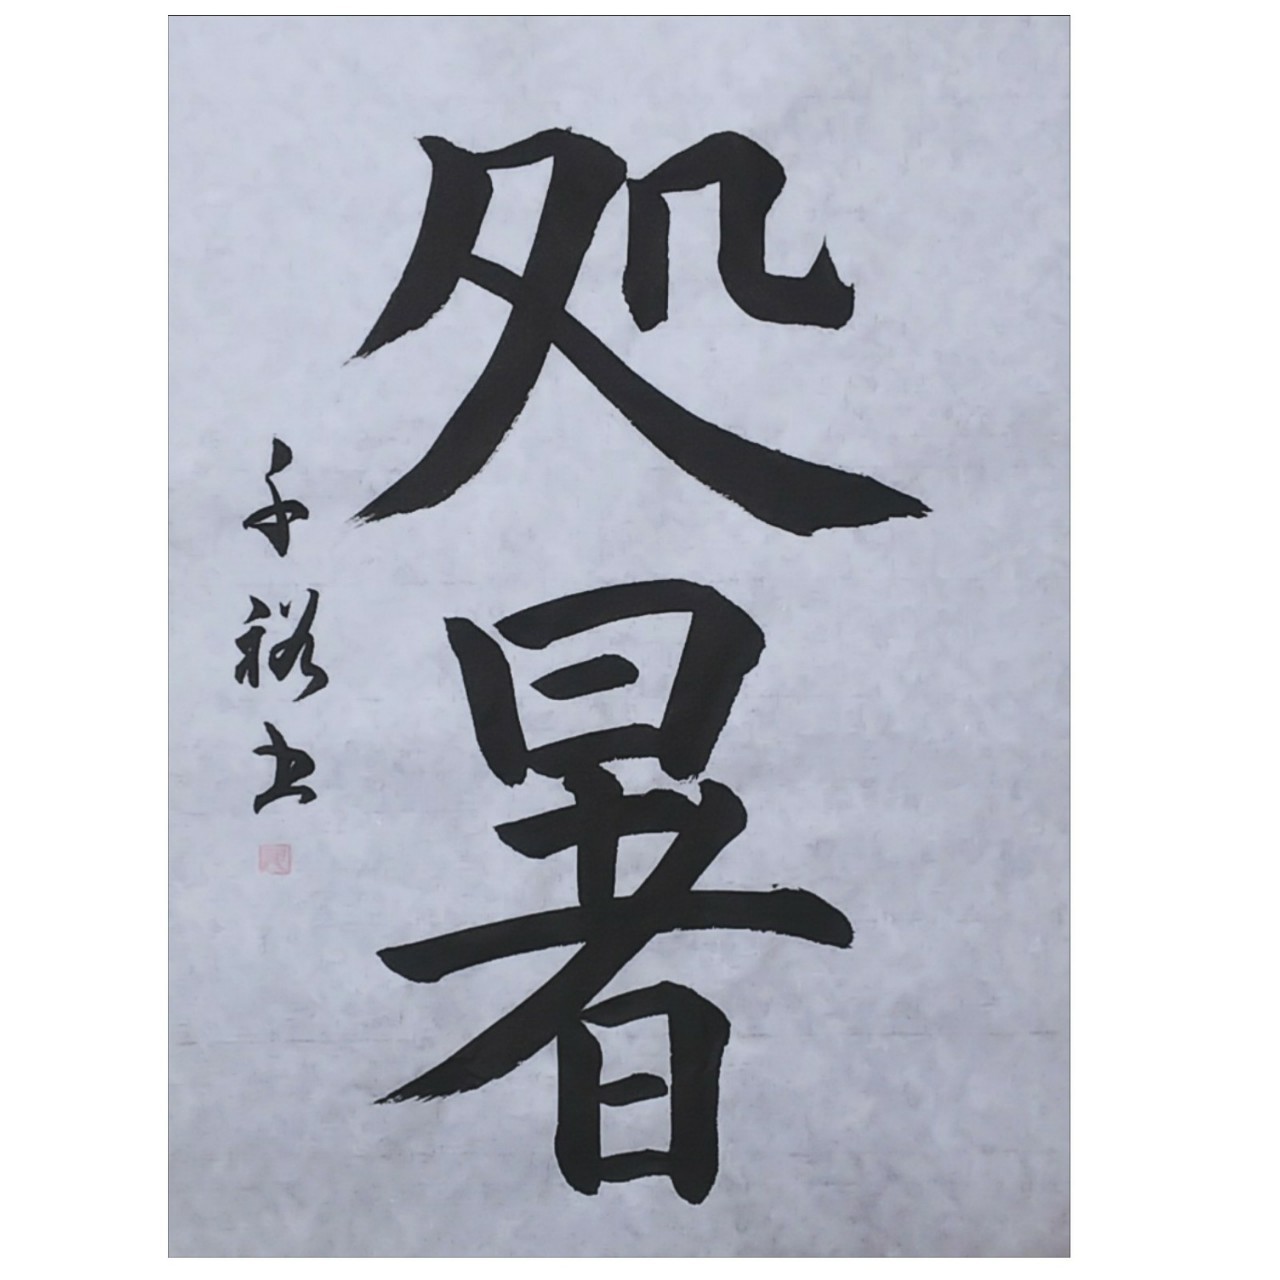 処暑
千裕書